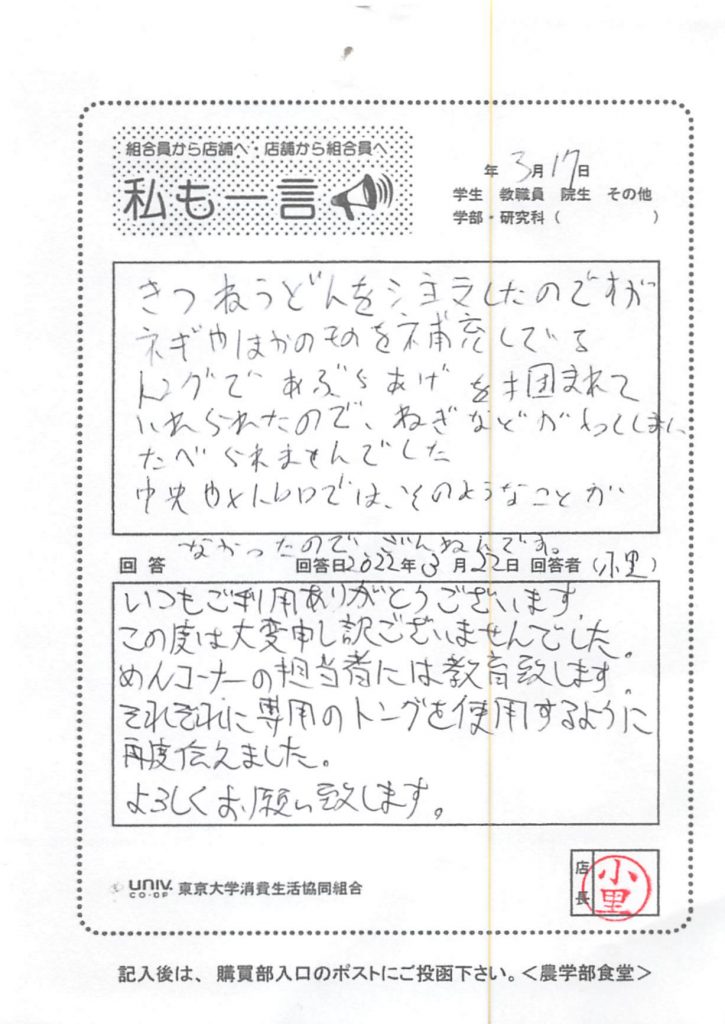 組合員から店舗へ・店舗から組合員へ
私も一言
年 3月 17日
学生 教職員 院生 その他
学部・研究科（ ）
きつねうどんを注文したのですが
ネギやほかのものを補充している
トングで あぶらあげ を
いれられたので、ねぎなどが
たべられませんでした
中央やメトロでは、そのようなことが
なかったので ざんねんです。
回 答 回答日2022年 3月 22日 回答者（小里）
いつもご利用ありがとうございます。
この度は大変申し訳ございませんでした。
めんコーナーの担当者には教育致します。
それぞれに専用のトングを使用するように
再度伝えました。
よろしくお願い致します。
UNIV. CO-OP 東京大学消費生活協同組合
店長 小里
記入後は、購買部入口のポストにご投函下さい。＜農学部食堂＞